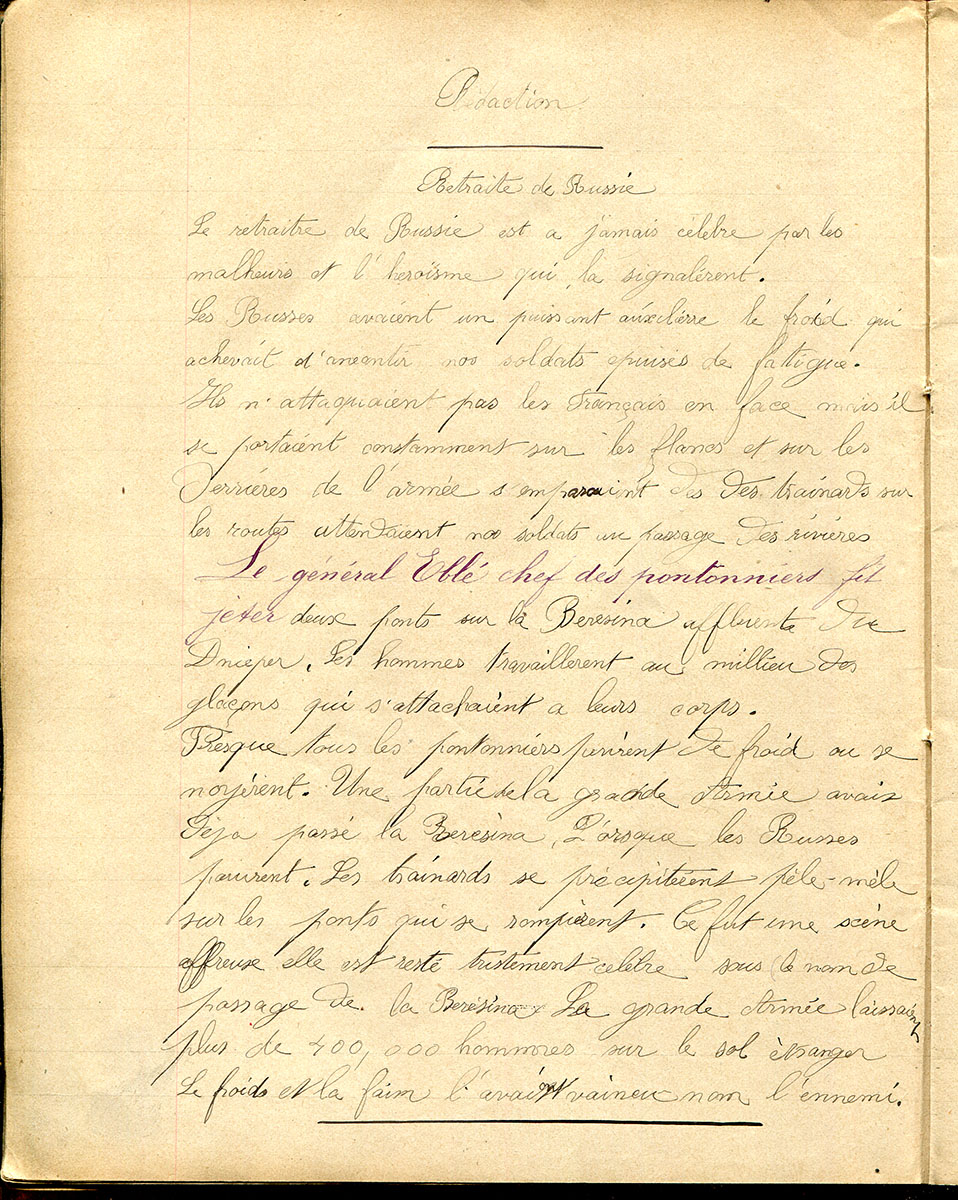 Rédaction
Retraite de Russie
Le retraitre de Russie est a jamais célèbre par les
malheurs et l'heroïsme qui la signalèrent.
Les Russes avaient un puissant auxilière le froid qui
achevait d'aneantir nos soldats epuises de fattigue.
Ils n'attaquaient pas les Français en face mais il
se portaient constamment sur les flancs et sur les
Derrières de l'armée s'emparaint des des trainards sur
les routes attendaient nos soldats au passage des rivières
Le général Eblé chef des pontonniers fit
jeter deux ponts sur la Beresina affluente du
Dnieper. Les hommes travaillerent au millieu des
glaçons qui s'attachaient a leurs corps.
Presque tous les pontonniers perirent de froid ou se
noyèrent. Une partie de la grande Armée avais
Deja passé la Beresina, L'orsque les Russes
parurent. Les trainards se précipitèent pèle-mèle
sur les ponts qui se rompirent. Ce fut une scène
affreuse elle est resté tristement celèbre sous le nom de
passage de la Beresina La grande Armée laissaient
plus de 400,000 hommres sur le sol ètranger
Le froids et la faim l'avaint vaineu nom l'ennemi.